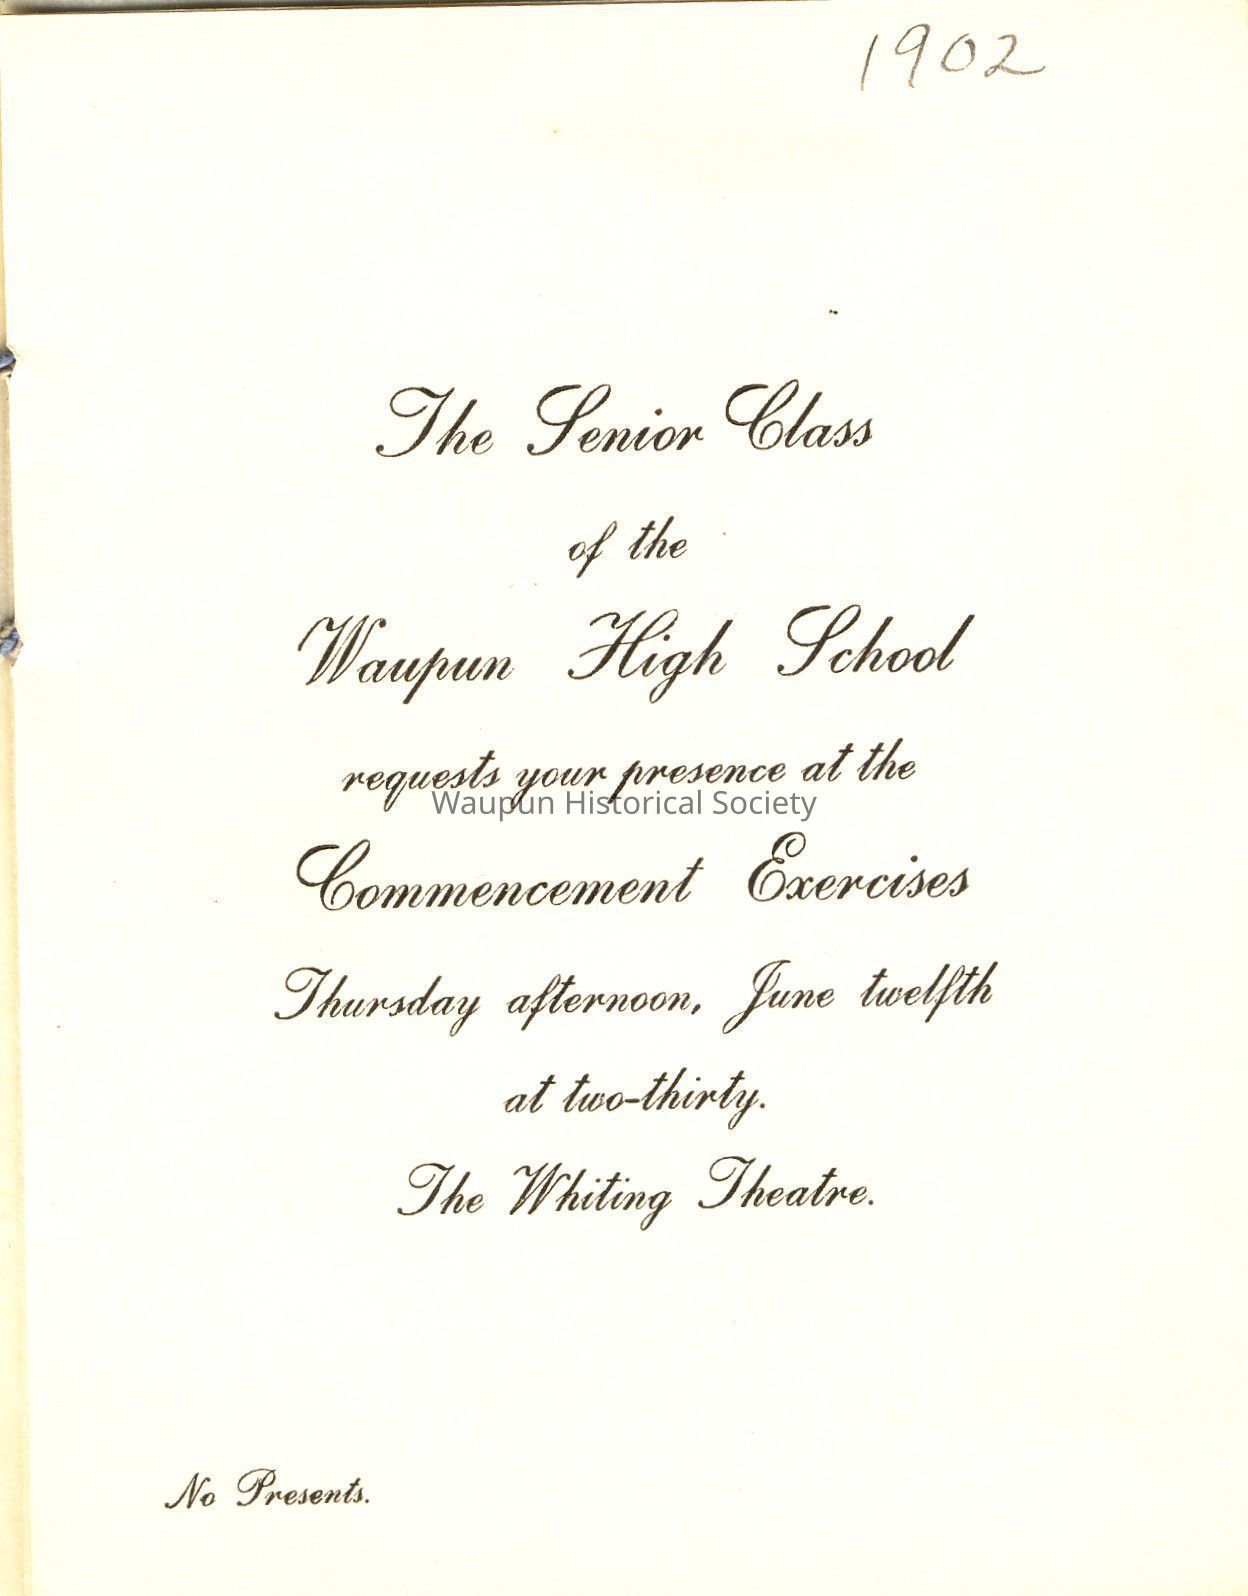 1902
The Senior Class
of the
Waupun High School
requests your presence at the
Waupun Historical Society
Commencement Exercises
Thursday afternoon, June twelfth
at two-thirty.
The Whiting Theatre.
No Presents.